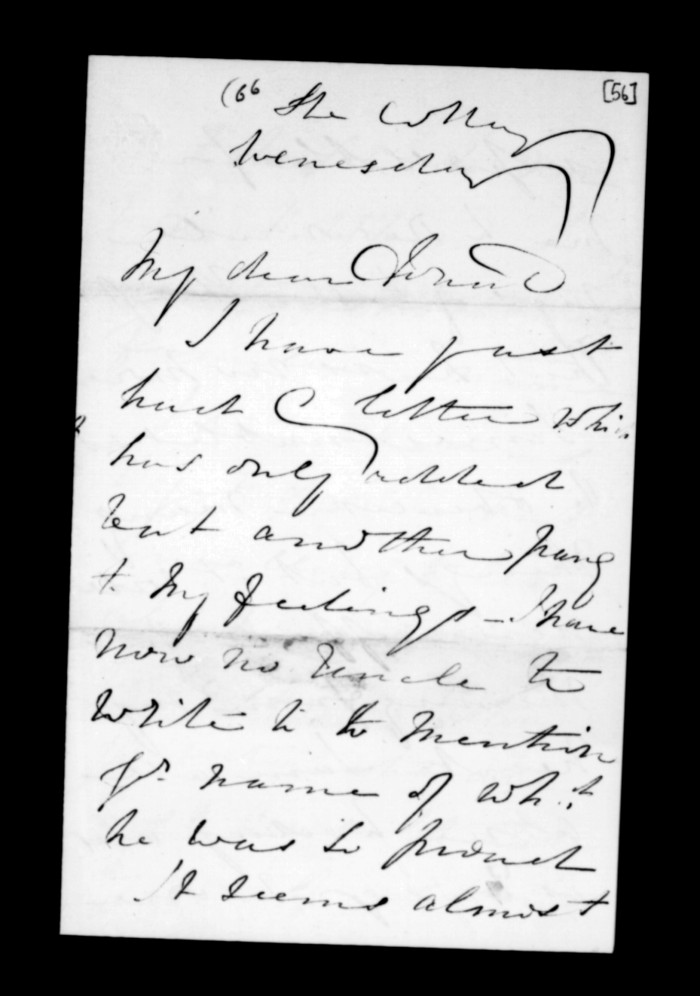 (66 [56]
The Cottage
Wenesday
My dear
I have just
had a letter whi
has only added
but another pang
t my feelings - I have
now no Uncle to
write to to mention
yr name of wh.
he was so proud
It seems almost